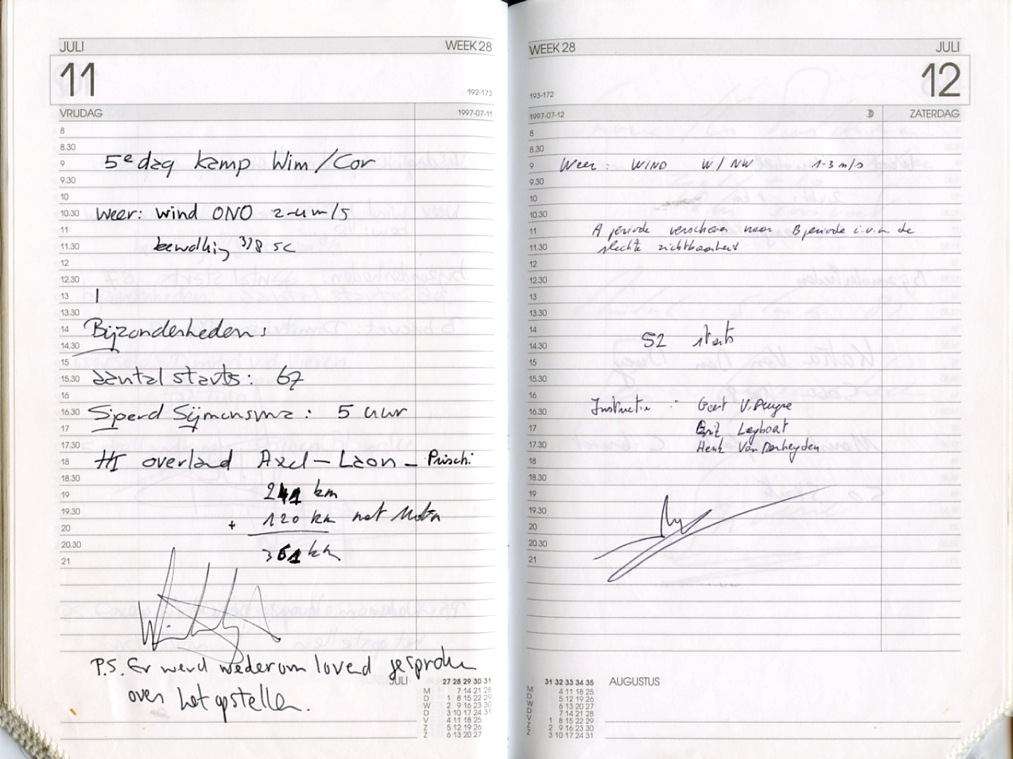 JULI WEEK 28
11
192-173
VRIJDAG 1997-07-11
8
8.30
9 5e dag kamp Wim/Cor
9.30
10
10.30 weer: wind ONO 2-4 m/s
11
11.30 bewolking 3/8 sc
12
12.30
13
14 Bijzonderheden:
14.30
15
15.30 aantal starts: 67
16
16.30 Sjoerd Sijmonsma: 5 uur
17
17.30
18 overland Axel - Laon - Prischi
18.30
19 241 km
19.30 + 120 km
20
20.30 361 km
21
P.S. Er werd wederom lovend gesproken
over het opstellen.
JULI
27 28 29 30 31
M 7 14 21 28
D 1 8 15 22 29
W 2 9 16 23 30
D 3 10 17 24 31
V 4 11 18 25
Z 5 12 19 26
Z 6 13 20 27
WEEK 28 JULI
12
193-172
1997-07-12 ZATERDAG
8
8.30
9 Weer: WIND W/NW 1-3 m/s
9.30
10
10.30
11 A periode verschoven naar B periode i.v.m. de
11.30 slechte zichtbaarheid
12
12.30
13
13.30
14
14.30 52 starts
15
15.30
16
16.30 Instructie: Geert V.
17
17.30 Henk Van Derheyden
18
18.30
19
19.30
20
20.30
21
AUGUSTUS
31 32 33 34 35
M 4 11 18 25
D 5 12 19 26
W 6 13 20 27
D 7 14 21 28
V 1 8 15 22 29
Z 2 9 16 23 30
Z 3 10 17 24 31